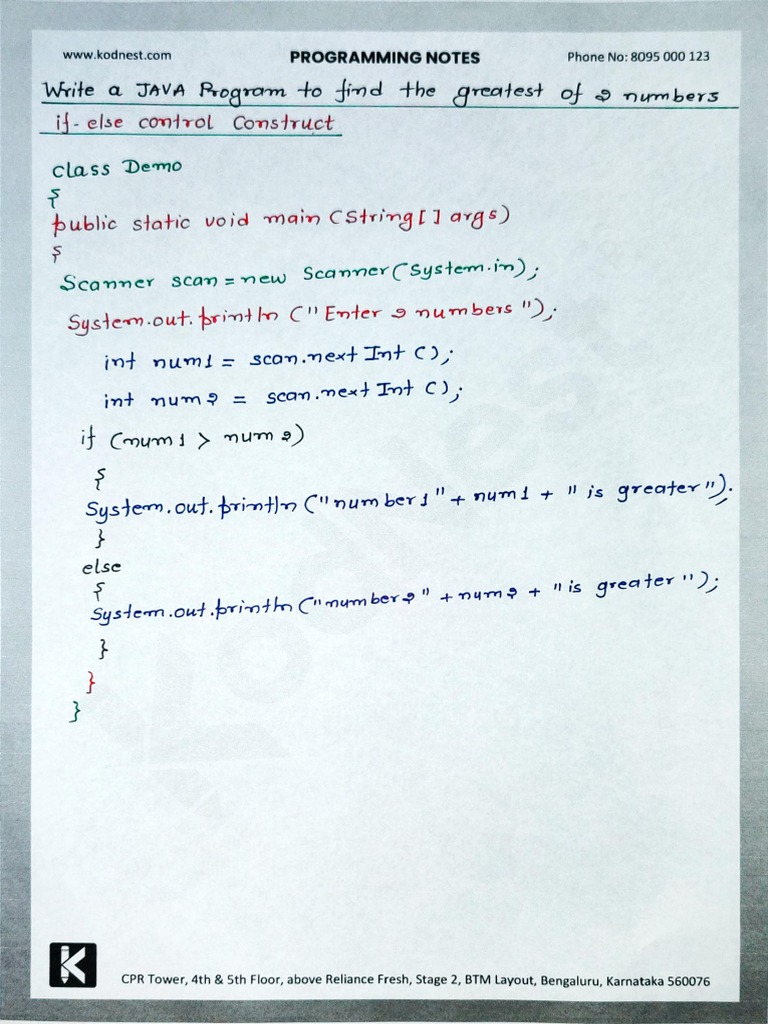 www.kodnest.com PROGRAMMING NOTES Phone No: 8095 000 123
Write a JAVA Program to find the greatest of 2 numbers
if-else control Construct
class Demo
{
public static void main (String[] args)
{
Scanner scan = new Scanner(System.in);
System.out.println ("Enter 2 numbers");
int num1 = scan.nextInt();
int num2 = scan.nextInt();
if (num1 > num2)
{
System.out.println ("number1" + num1 + " is greater");
}
else
{
System.out.println ("number2" + num2 + "is greater");
}
}
}
Kodnest
K
CPR Tower, 4th & 5th Floor, above Reliance Fresh, Stage 2, BTM Layout, Bengaluru, Karnataka 560076